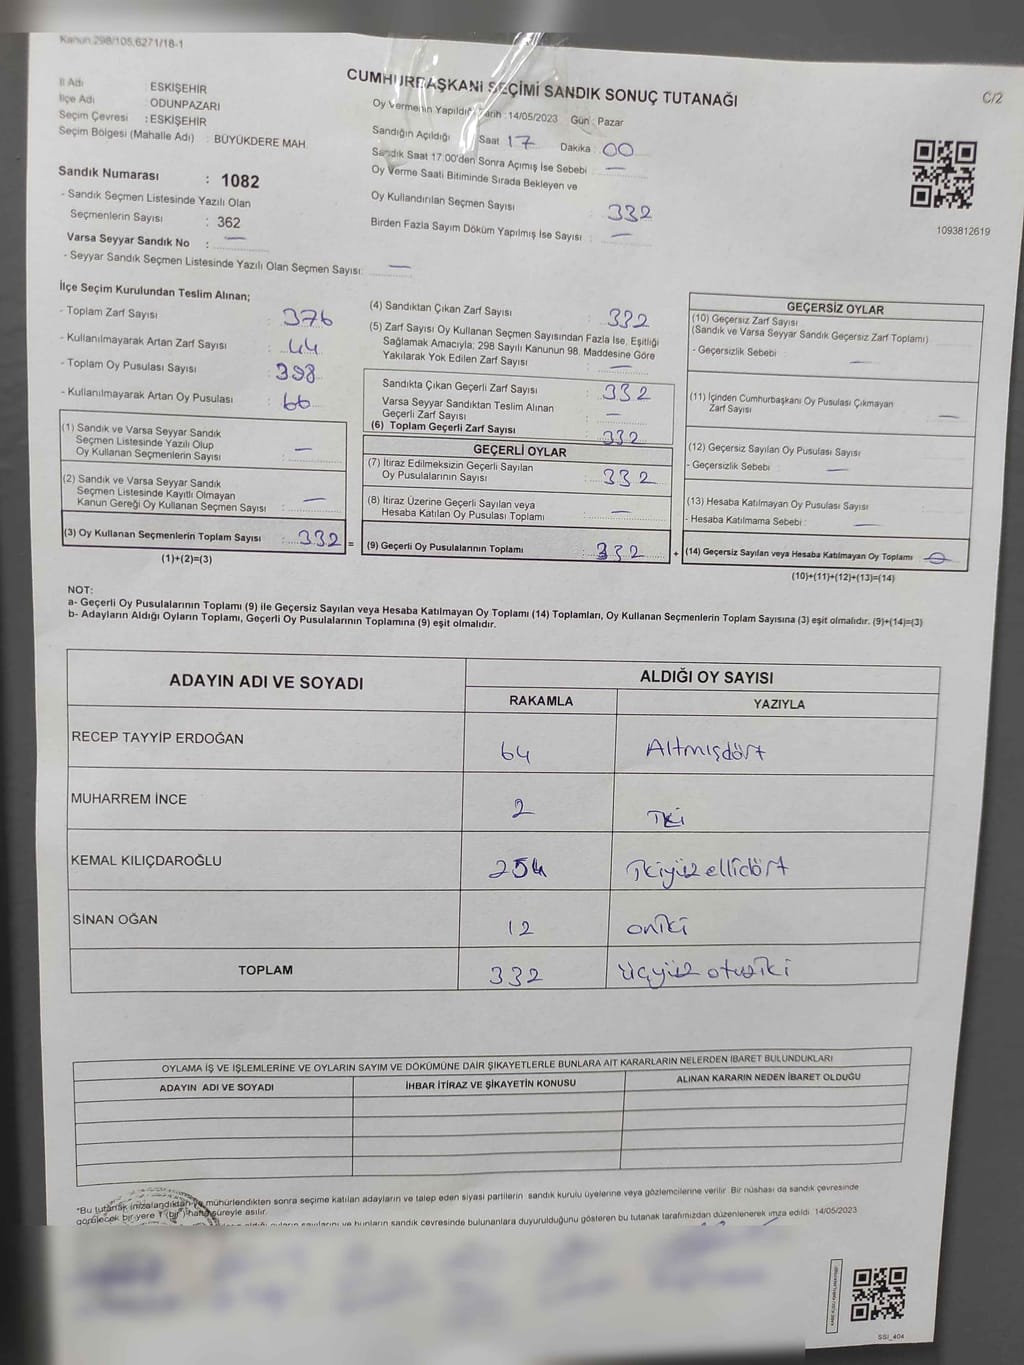 Kanun:298/105,6271/18-1
CUMHURBAŞKANI SEÇİMİ SANDIK SONUÇ TUTANAĞI
C/2
İl Adı : ESKİŞEHİR
İlçe Adı : ODUNPAZARI
Seçim Çevresi : ESKİŞEHİR
Seçim Bölgesi (Mahalle Adı) : BÜYÜKDERE MAH.
Sandık Numarası : 1082
- Sandık Seçmen Listesinde Yazılı Olan
Seçmenlerin Sayısı : 362
Varsa Seyyar Sandık No : —
- Seyyar Sandık Seçmen Listesinde Yazılı Olan Seçmen Sayısı: —
Oy Vermenin Yapıldığı Tarih : 14/05/2023 Gün : Pazar
Sandığın Açıldığı Saat 17 Dakika : 00
Sandık Saat 17:00'den Sonra Açımış İse Sebebi : —
Oy Verme Saati Bitiminde Sırada Bekleyen ve
Oy Kullandırılan Seçmen Sayısı : 332
Birden Fazla Sayım Döküm Yapılmış İse Sayısı : —
1093812619
İlçe Seçim Kurulundan Teslim Alınan;
- Toplam Zarf Sayısı : 376
- Kullanılmayarak Artan Zarf Sayısı : 44
- Toplam Oy Pusulası Sayısı : 398
- Kullanılmayarak Artan Oy Pusulası : 66
(1) Sandık ve Varsa Seyyar Sandık
Seçmen Listesinde Yazılı Olup
Oy Kullanan Seçmenlerin Sayısı : —
(2) Sandık ve Varsa Seyyar Sandık
Seçmen Listesinde Kayıtlı Olmayan
Kanun Gereği Oy Kullanan Seçmen Sayısı : —
(3) Oy Kullanan Seçmenlerin Toplam Sayısı : 332 =
(1)+(2)=(3)
(4) Sandıktan Çıkan Zarf Sayısı : 332
(5) Zarf Sayısı Oy Kullanan Seçmen Sayısından Fazla İse, Eşitliği
Sağlamak Amacıyla; 298 Sayılı Kanunun 98. Maddesine Göre
Yakılarak Yok Edilen Zarf Sayısı : —
Sandıkta Çıkan Geçerli Zarf Sayısı : 332
Varsa Seyyar Sandıktan Teslim Alınan
Geçerli Zarf Sayısı : —
(6) Toplam Geçerli Zarf Sayısı : 332
GEÇERLİ OYLAR
(7) İtiraz Edilmeksizin Geçerli Sayılan
Oy Pusulalarının Sayısı : 332
(8) İtiraz Üzerine Geçerli Sayılan veya
Hesaba Katılan Oy Pusulası Toplamı : —
(9) Geçerli Oy Pusulalarının Toplamı : 332 +
GEÇERSİZ OYLAR
(10) Geçersiz Zarf Sayısı
(Sandık ve Varsa Seyyar Sandık Geçersiz Zarf Toplamı)
- Geçersizlik Sebebi : —
(11) İçinden Cumhurbaşkanı Oy Pusulası Çıkmayan
Zarf Sayısı —
(12) Geçersiz Sayılan Oy Pusulası Sayısı
- Geçersizlik Sebebi : —
(13) Hesaba Katılmayan Oy Pusulası Sayısı
- Hesaba Katılmama Sebebi : —
(14) Geçersiz Sayılan veya Hesaba Katılmayan Oy Toplamı
(10)+(11)+(12)+(13)=(14)
NOT:
a- Geçerli Oy Pusulalarının Toplamı (9) ile Geçersiz Sayılan veya Hesaba Katılmayan Oy Toplamı (14) Toplamları, Oy Kullanan Seçmenlerin Toplam Sayısına (3) eşit olmalıdır. (9)+(14)=(3)
b- Adayların Aldığı Oyların Toplamı, Geçerli Oy Pusulalarının Toplamına (9) eşit olmalıdır.
ADAYIN ADI VE SOYADI
ALDIĞI OY SAYISI
RAKAMLA YAZIYLA
RECEP TAYYİP ERDOĞAN 64 Altmışdört
MUHARREM İNCE 2 İki
KEMAL KILIÇDAROĞLU 254 İkiyüz ellidört
SİNAN OĞAN 12 oniki
TOPLAM 332 üçyüz otuziki
OYLAMA İŞ VE İŞLEMLERİNE VE OYLARIN SAYIM VE DÖKÜMÜNE DAİR ŞİKAYETLERLE BUNLARA AİT KARARLARIN NELERDEN İBARET BULUNDUKLARI
ADAYIN ADI VE SOYADI İHBAR İTİRAZ VE ŞİKAYETİN KONUSU ALINAN KARARIN NEDEN İBARET OLDUĞU
*Bu tutanak imzalandıktan ve mühürlendikten sonra seçime katılan adayların ve talep eden siyasi partilerin sandık kurulu üyelerine veya gözlemcilerine verilir. Bir nüshası da sandık çevresinde
görülecek bir yere 1 (bir) hafta süreyle asılır.
ve bunların sandık çevresinde bulunanlara duyurulduğunu gösteren bu tutanak tarafımızdan düzenlenerek imza edildi. 14/05/2023
SSI_404